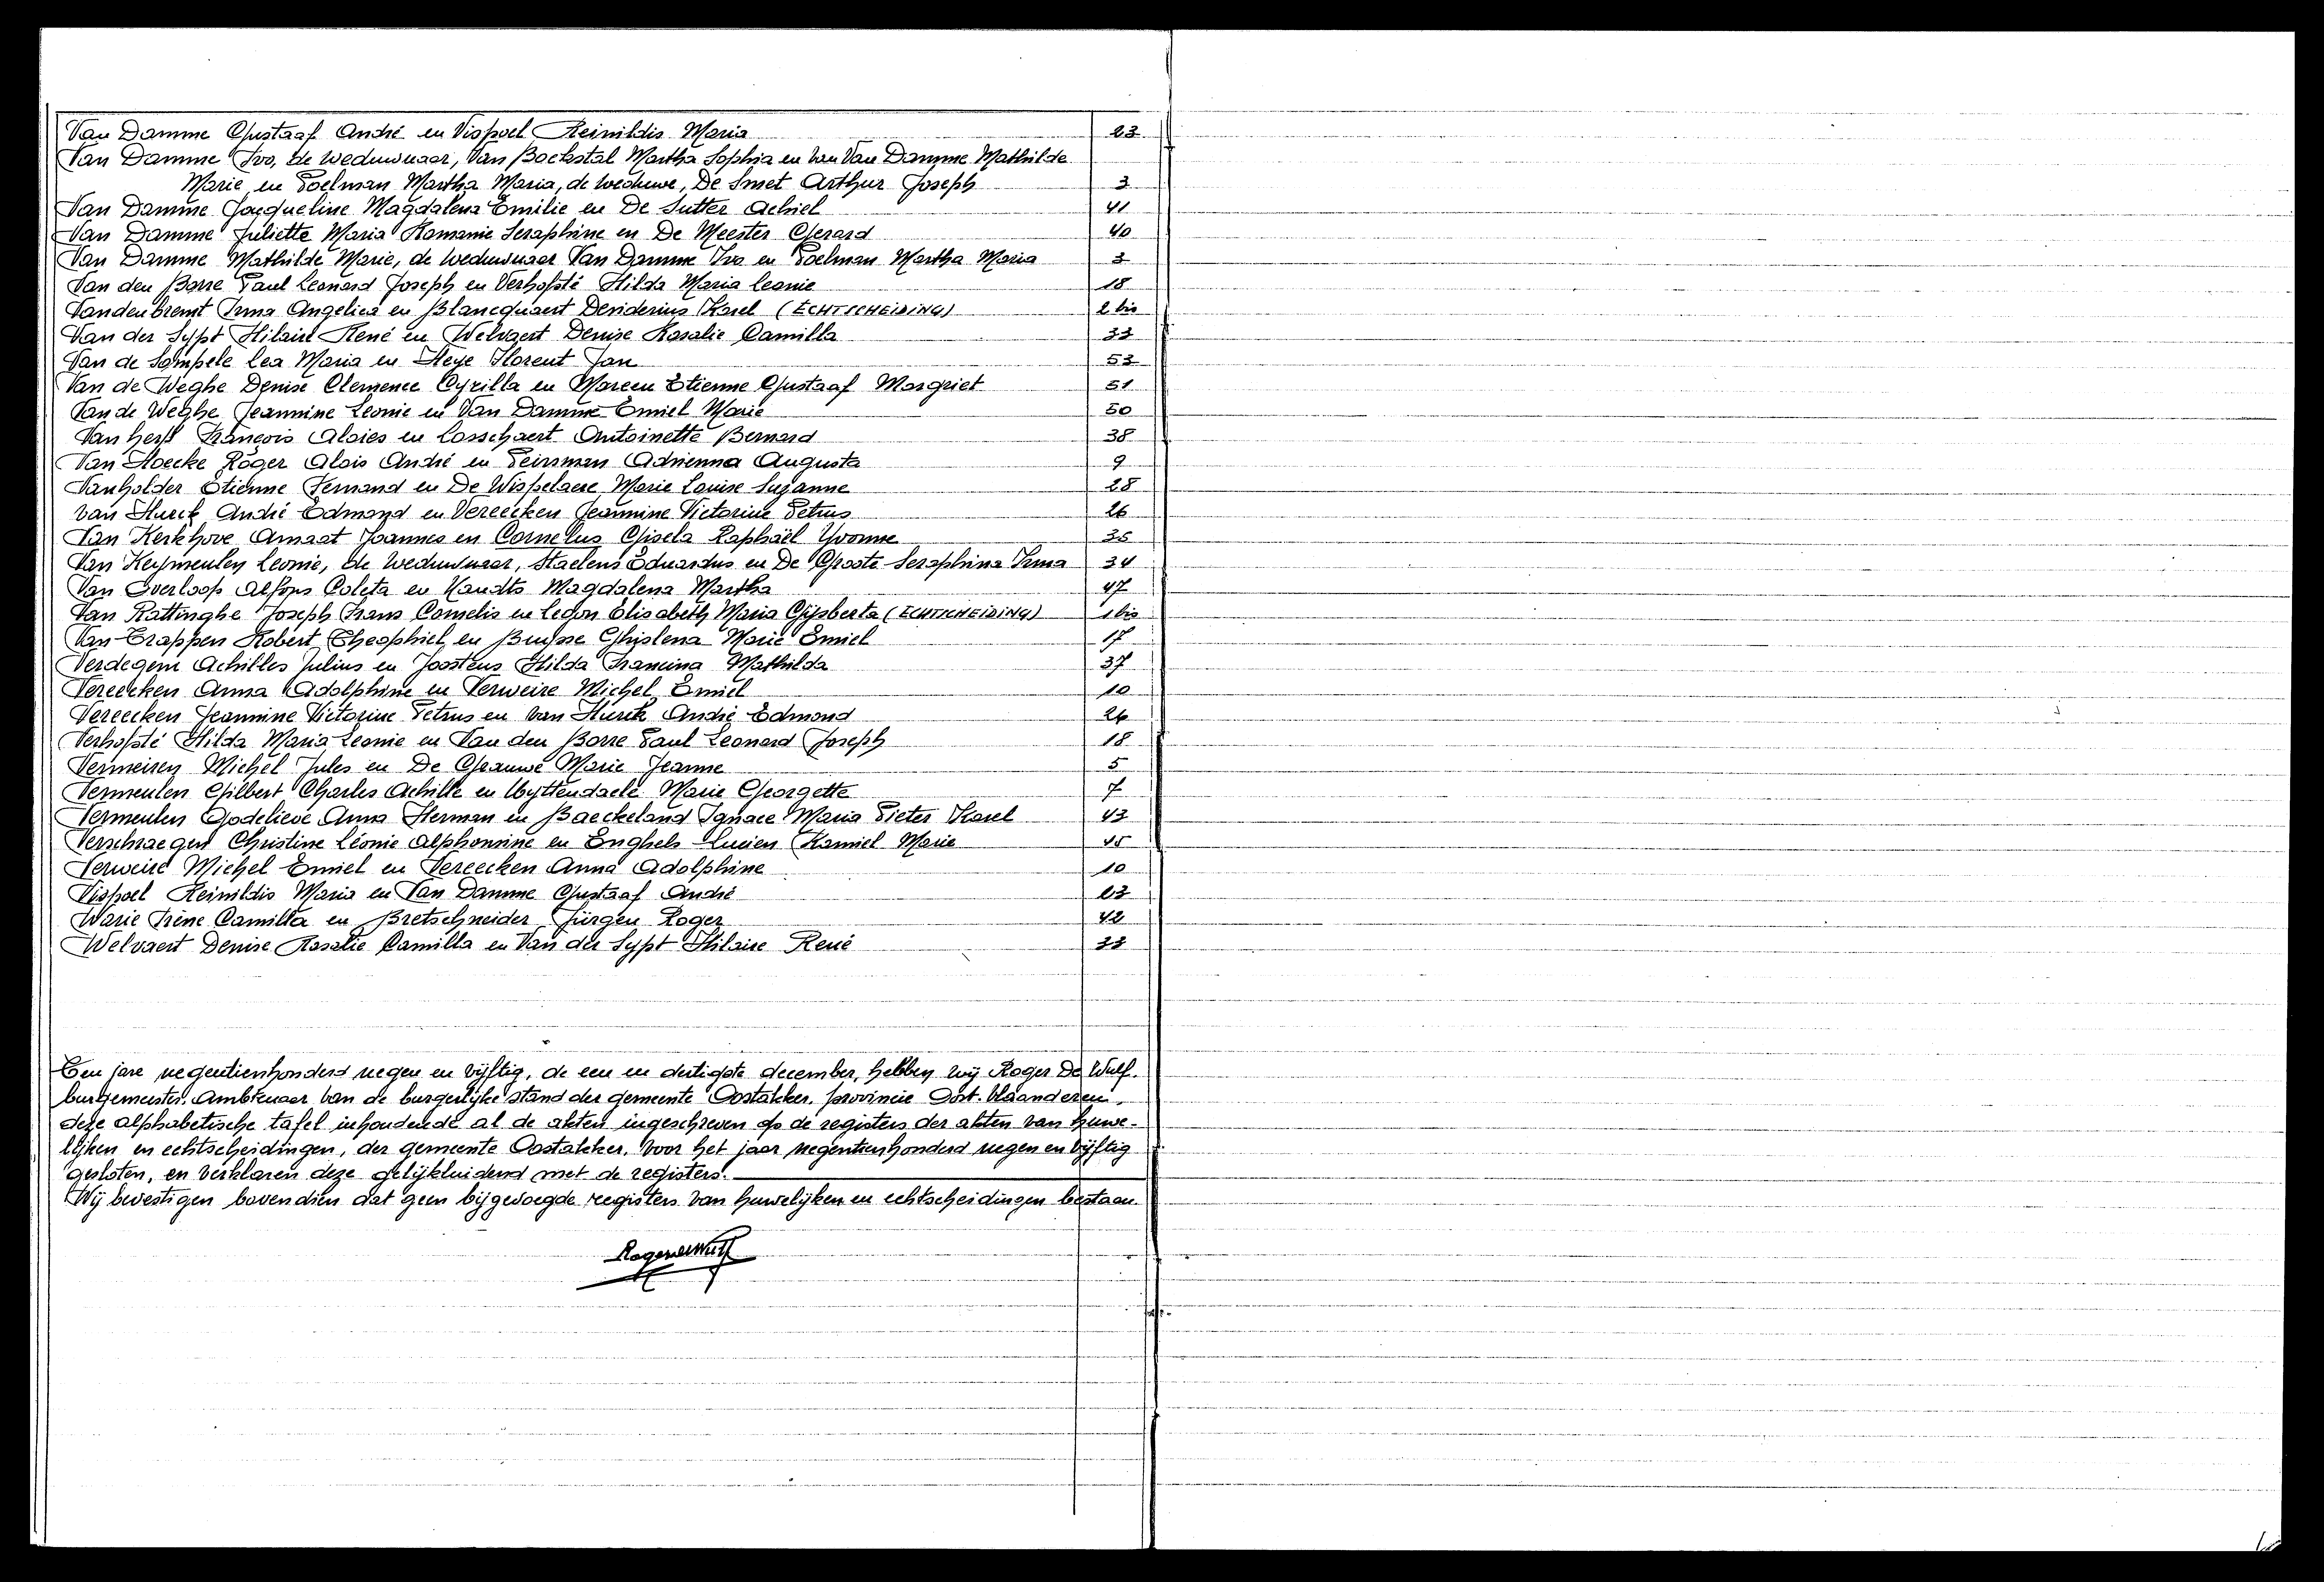 Van Damme Gustaaf André en Vispoel Reinildis Maria 23
Van Damme Ivo, de weduwnaar, Van Backstal Martha Sophia en van Van Damme Mathilde
Marie, en Poelman Martha Maria, de weduwe, De Smet Arthur Joseph 3
Van Damme Jacqueline Magdalena Emilie en De Sutter Achiel 41
Van Damme Juliette Maria Romanie Seraphine en De Meester Gerard 40
Van Damme Mathilde Marie, de weduwnaar Van Damme Ivo en Poelman Martha Maria 3
Van den Borre Paul Leonard Joseph en Verhofsté Hilda Maria Leonie 18
Vandenbremt Irma Angelica en Blancquaert Desiderius Karel (ECHTSCHEIDING) 2 bis
Van der Sypt Hilaire René en Welvaert Denise Rosalie Camilla 33
Van de Sompele Lea Maria en Heye Florent Jan 53
Van de Weghe Denise Clemence Cyrilla en Mareen Etienne Gustaaf Margriet 51
Van de Weghe Jeannine Leonie en Van Damme Emiel Marie 50
Van herp François Aloies en Losschaert Antoinette Bernard 38
Van Hoecke Roger Alois André en Peirsman Adrienna Augusta 9
Vanholder Etienne Fernand en De Wispelaere Marie Louise Suzanne 28
Van Hurck André Edmond en Vereecken Jeannine Victorine Petrus 26
Van Kerkhove Amaat Joannes en Cornelus Gisela Raphaël Yvonne 35
Van Keymeulen Leonie, de weduwnaar, Staelens Eduardus en De Groote Seraphina Irma 34
Van Overloop Alfons Coleta en Kandts Magdalena Martha 47
Van Rattinghe Joseph Frans Cornelis en Legon Elisabeth Maria Gijsberta (ECHTSCHEIDING) 1 bis
Van Trappen Robert Theophiel en Buysse Ghislena Marie Emiel 17
Verdegem Achilles Julius en Joostens Hilda Francina Mathilda 37
Vereecken Anna Adolphine en Verweire Michel Emiel 10
Vereecken Jeannine Victorine Petrus en Van Hurck André Edmond 26
Verhofsté Hilda Maria Leonie en Van den Borre Paul Leonard Joseph 18
Vermeiren Michel Jules en De Grauwe Marie Jeanne 5
Vermeulen Gilbert Charles Achille en Uyttendaele Marie Georgette 7
Vermeulen Godelieve Anna Herman en Baeckeland Ignace Maria Pieter Karel 43
Verschraegen Christine Léonie Alphonsine en Enghels Lucien Kamiel Marie 45
Verweire Michel Emiel en Vereecken Anna Adolphine 10
Vispoel Reinildis Maria en Van Damme Gustaaf André 23
Warie Irène Camilla en Bretschneider Jürgen Roger 42
Welvaert Denise Rosalie Camilla en Van der Sypt Hilaire René 33
Ten jare negentienhonderd negen en vijftig, de een en dertigste december, hebben wij Roger De Wulf.
burgemeester. Ambtenaar van de burgerlijke stand der gemeente Oostakker. provincie Oost-Vlaanderen,
deze alphabetische tafel inhoudende al de akten ingeschreven op de registers der akten van huwe-
lijken en echtscheidingen, der gemeente Oostakker, voor het jaar negentienhonderd negen en vijftig
gesloten, en verklaren deze gelijkluidend met de registers.
Wij bevestigen bovendien dat geen bijgevoegde registers van huwelijken en echtscheidingen bestaan.
Roger De Wulf